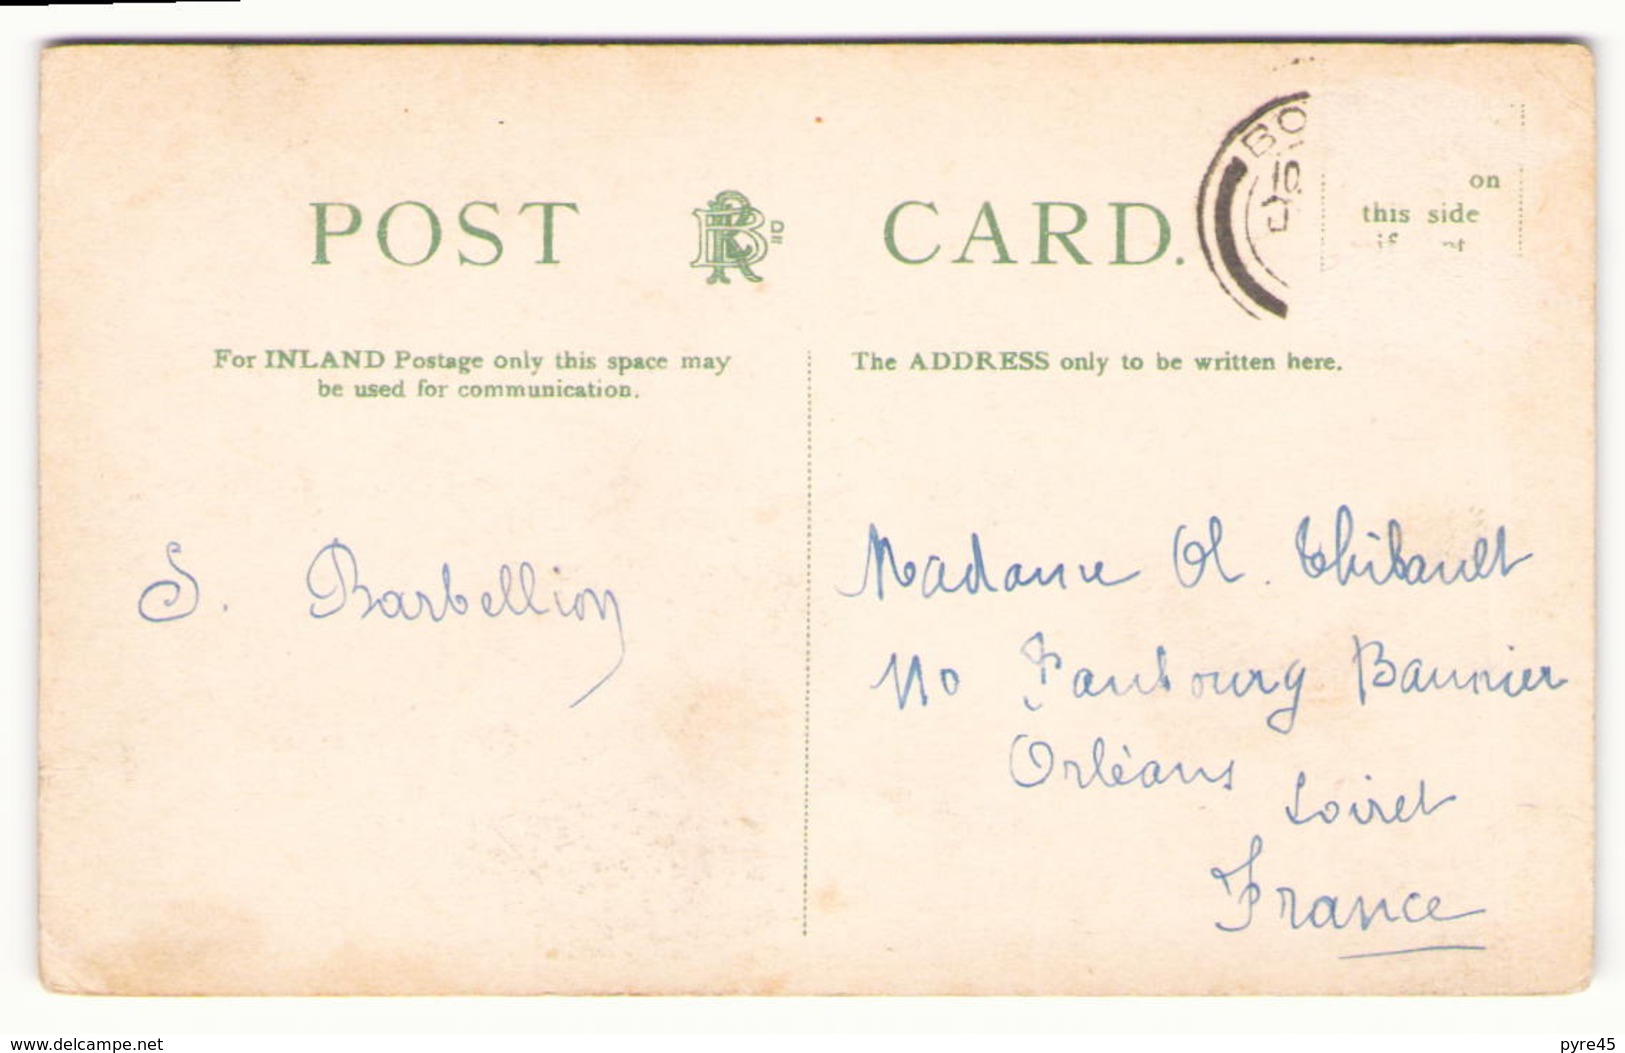 POST CARD.
BO
on
this side
For INLAND Postage only this space may
be used for communication.
The ADDRESS only to be written here.
S. Barbellion
Madame Ol. Thibault
110 Faubourg Bannier
Orléans
Loiret
France
www.delcampe.net
pyre45